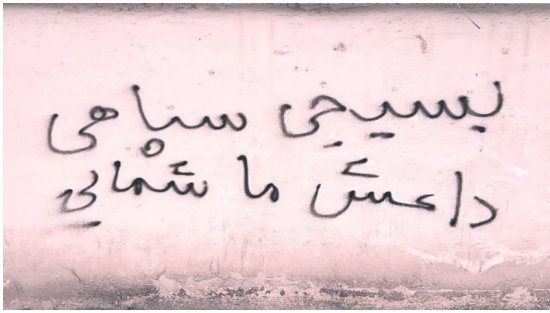 بسیجی سپاهی
داعش ما شمائی